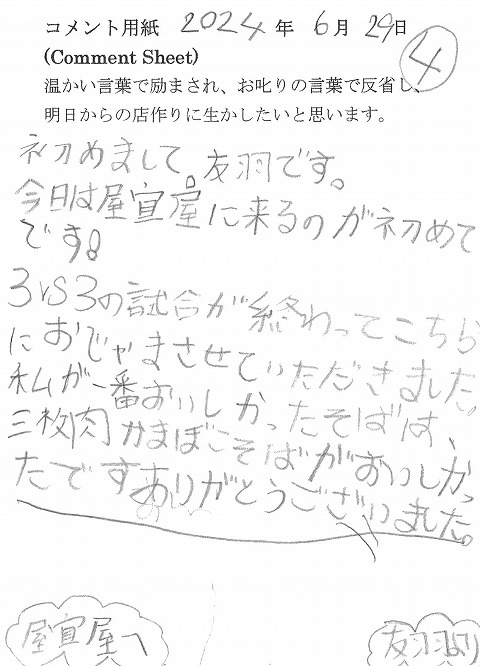 コメント用紙 2024年 6月 29日
④
(Comment Sheet)
温かい言葉で励まされ、お叱りの言葉で反省し、
明日からの店作りに生かしたいと思います。
初めまして。友羽です。
今日は屋宜屋に来るのが初めて
です。
3vs3の試合が終わってこちら
におじゃまさせていただきました。
私が一番おいしかったそばは、
三枚肉かまぼこそばがおいしかっ
たですありがとうございました。
屋宜屋へ
友羽より